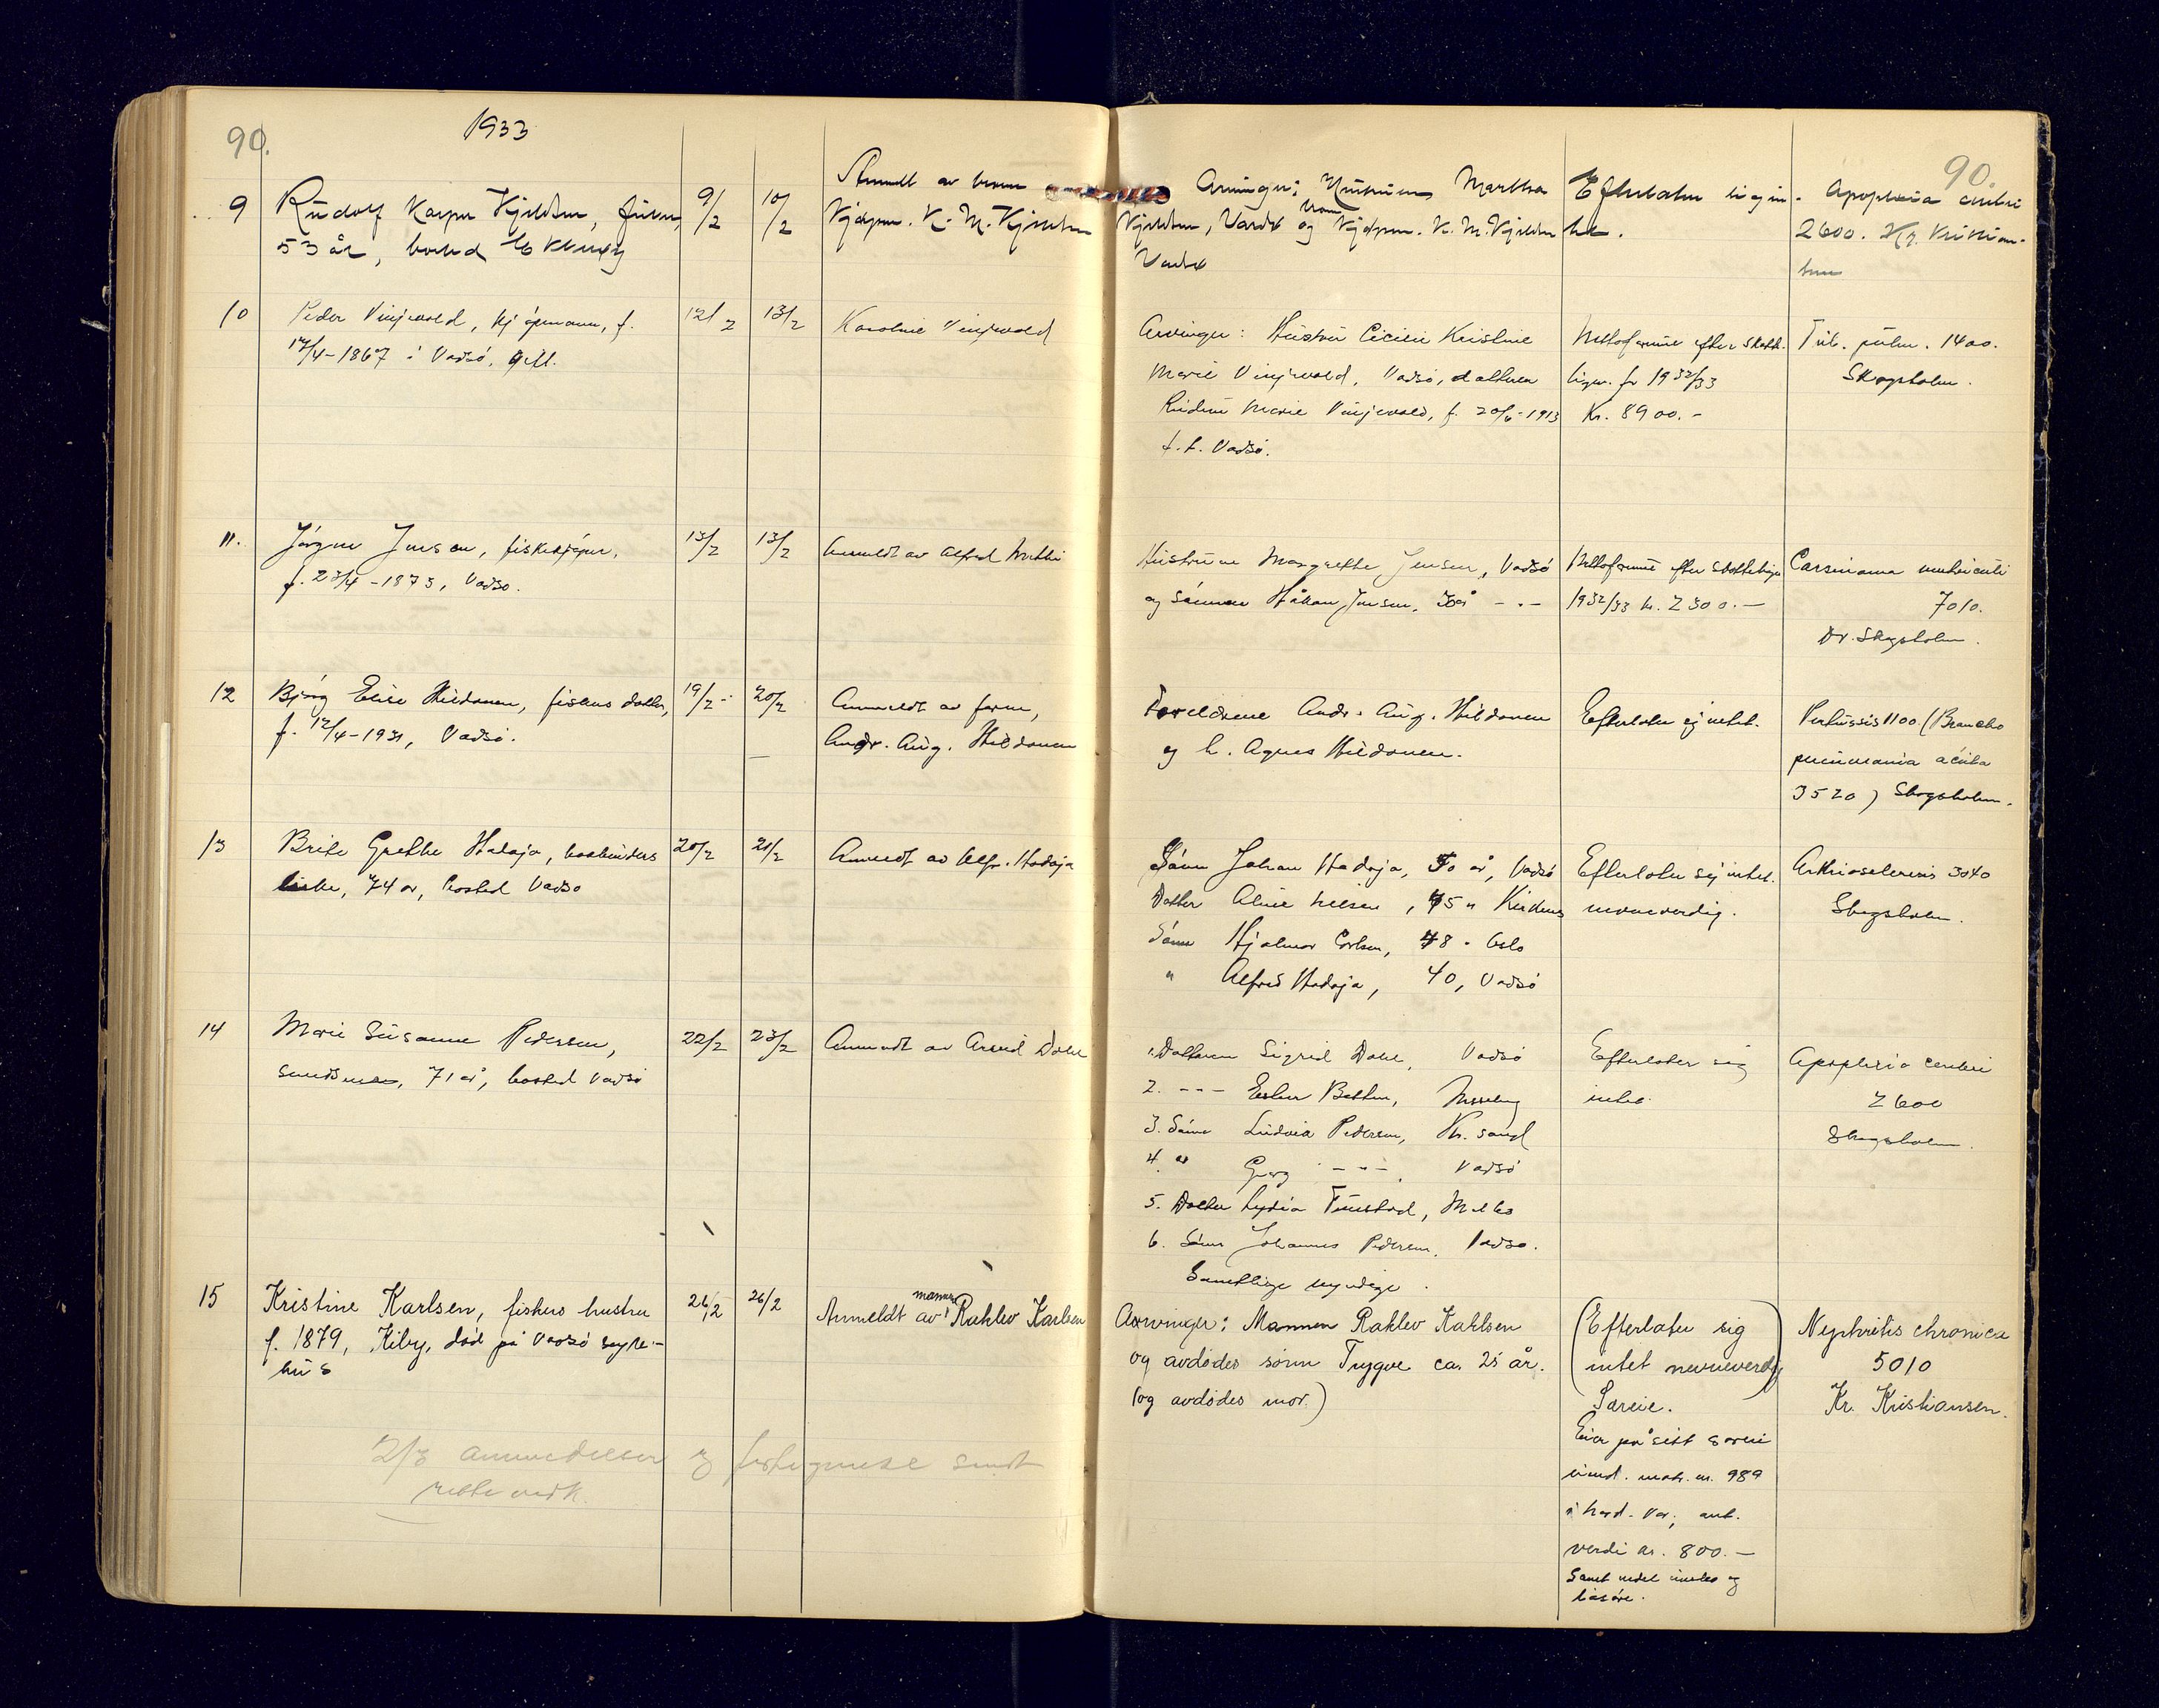 90.
1933
90.
9
Rudolf Kasper Kjeldsen, fisker,
53 år, bosted Ekkerøy
9/2
10/2
Anmeldt av broren
Kjøpm. K. M. Kjeldsen
Arvinger: Hustruen Martha
Kjeldsen, Vardø og broren Kjøpm. K. M. Kjeldsen
Vardø
Efterlater sig in-
tet.
Apoplexia cerebri
2600. Kr. Kristian-
sen
10
Peder Vinjevold, kjøpmann, f.
17/4-1867 i Vadsø, gift.
12/2
13/2
Karoline Vinjevold
Arvinger: Hustru Cicilie Kristine
Marie Vinjevold, Vadsø, datteren
Marie Vinjevold, f. 20/6-1913
Vadsø.
Nettoformue efter skatte-
lign. for 1932/33
Kr. 8900.-
Tub. pulm. 1400.
Skogsholm.
11.
Jørgen Jensen, fiskekjøper,
f. 23/4-1873, Vadsø.
13/2
13/2
Anmeldt av Alfred
Hustruen Margrethe Jensen, Vadsø
og sønnen Håkon Jensen, - " -
Nettoformue efter skattelign.
1932/33 kr. 2300.-
Carsinoma ventriculi
7010.
Dr. Skogsholm.
12
Bjørg Elise Hildonen, fiskers datter,
f. 12/4-1931, Vadsø.
19/2
20/2
Anmeldt av faren,
Andr. Aug. Hildonen
Foreldrene Andr. Aug. Hildonen
og h. Agnes Hildonen.
Efterlater sig intet.
Pertussis 1100. (Broncho
pneumonia acuta
3520) Skogsholm.
13
Brite Grethe Hadaja,
enke, 74 år, bosted Vadsø
20/2
21/2
Anmeldt av Alfr. Hadaja
Sønn Johan Hadaja, 50 år, Vadsø
Datter Aline Nilsen, 45 " Kirkenes
Sønn Hjalmar Carlsen, 48 " Oslo
" Alfred Hadaja, 40, Vadsø
Efterlater sig intet
nevneverdig.
Arthriosclerosis 3040
Skogsholm.
14
Marie Susanne Pedersen,
71 år, bosted Vadsø
22/2
23/2
Anmeldt av Arvid Dahl
1. Datteren Sigrid Dahl, Vadsø
2. - - - Ester Betten,
3. Sønn Ludvik Pedersen, Kr.sand
4. " Georg - " - , Vadsø
5. Datter Lydia
6. Sønn Johannes Pedersen, Vadsø.
Samtlige myndige.
Efterlater sig
intet.
Apoplexia cerebri
2600
Skogsholm.
15
Kristine Karlsen, fiskers hustru
f. 1879, Kiby, død på Vadsø syke-
hus
26/2
26/2
Anmeldt av mannen Raklev Karlsen
Arvinger: Mannen Raklev Karlsen
og avdødes sønn Trygve ca. 25 år.
(og avdødes mor.)
(Efterlater sig
intet nevneverdig)
Særeie.
Eier på sitt særeie
eiend. matr. nr. 989
i Nord-Var., ant.
verdi kr. 800.-
samt endel innbo og
løsøre.
Nephritis chronica
5010
Kr. Kristiansen.
2/3 anmeldelser og fortegnelse sendt